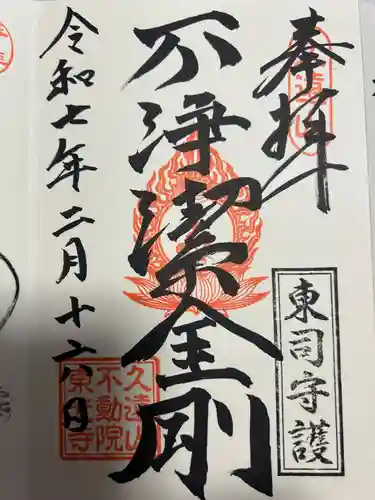 奉拝
東司守護
不浄潔金剛
令和七年二月十六日
久遠山
不動院
東
寺